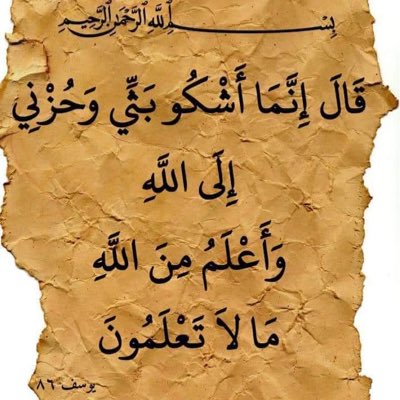 بِسْمِ اللَّهِ الرَّحْمَٰنِ الرَّحِيمِ
قَالَ إِنَّمَا أَشْكُو بَثِّي وَحُزْنِي
إِلَى اللَّهِ
وَأَعْلَمُ مِنَ اللَّهِ
مَا لاَ تَعْلَمُونَ
يوسف ٨٦